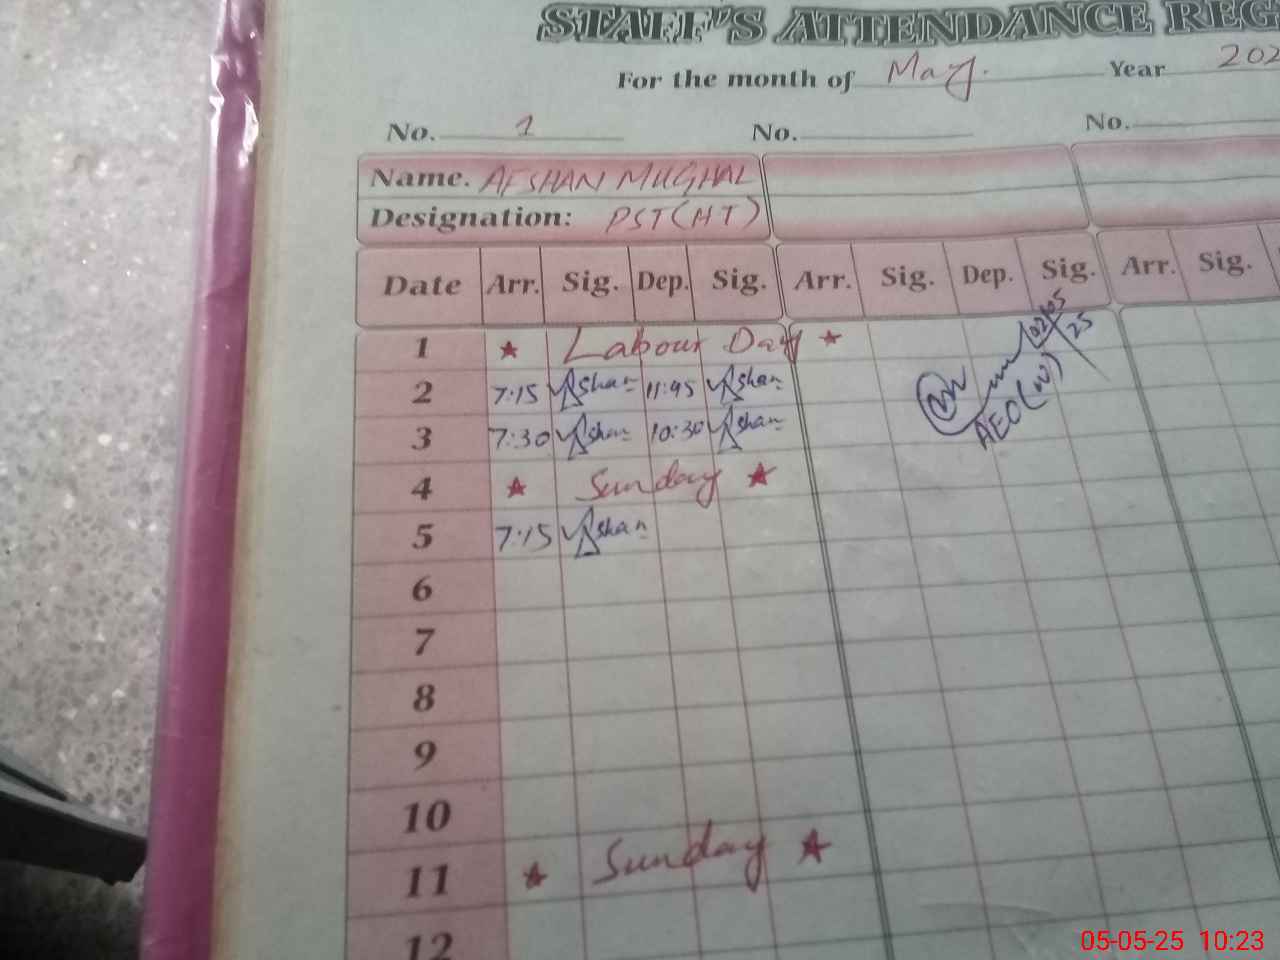 STAFF'S ATTENDANCE REG
For the month of May. Year 202
No. 1 No. No.
Name. AFSHAN MUGHAL
Designation: PST(HT)
Date Arr. Sig. Dep. Sig. Arr. Sig. Dep. Sig. Arr. Sig.
1 ★ Labour Day ★
2 7:15 Afshan 11:45 Afshan
3 7:30 Afshan 10:30 Afshan
4 ★ Sunday ★
5 7:15 Afshan
6
7
8
9
10
11 ★ Sunday ★
12
02/05/25
AEO(W)
05-05-25 10:23